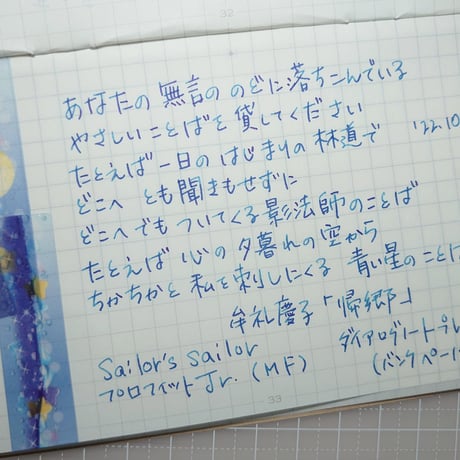 32
あなたの無言ののどに落ちこんでいる
やさしいことばを貸してください
たとえば一日のはじまりの林道で
'22.10
どこへ とも聞きもせずに
どこへでもついてくる影法師のことば
たとえば心の夕暮れの空から
ちかちかと私を刺しにくる青い星のことば
牟礼慶子「帰郷」
Sailor's sailor
プロフィットJr.(MF)
ダイアログノート
(バンクペーパー
33